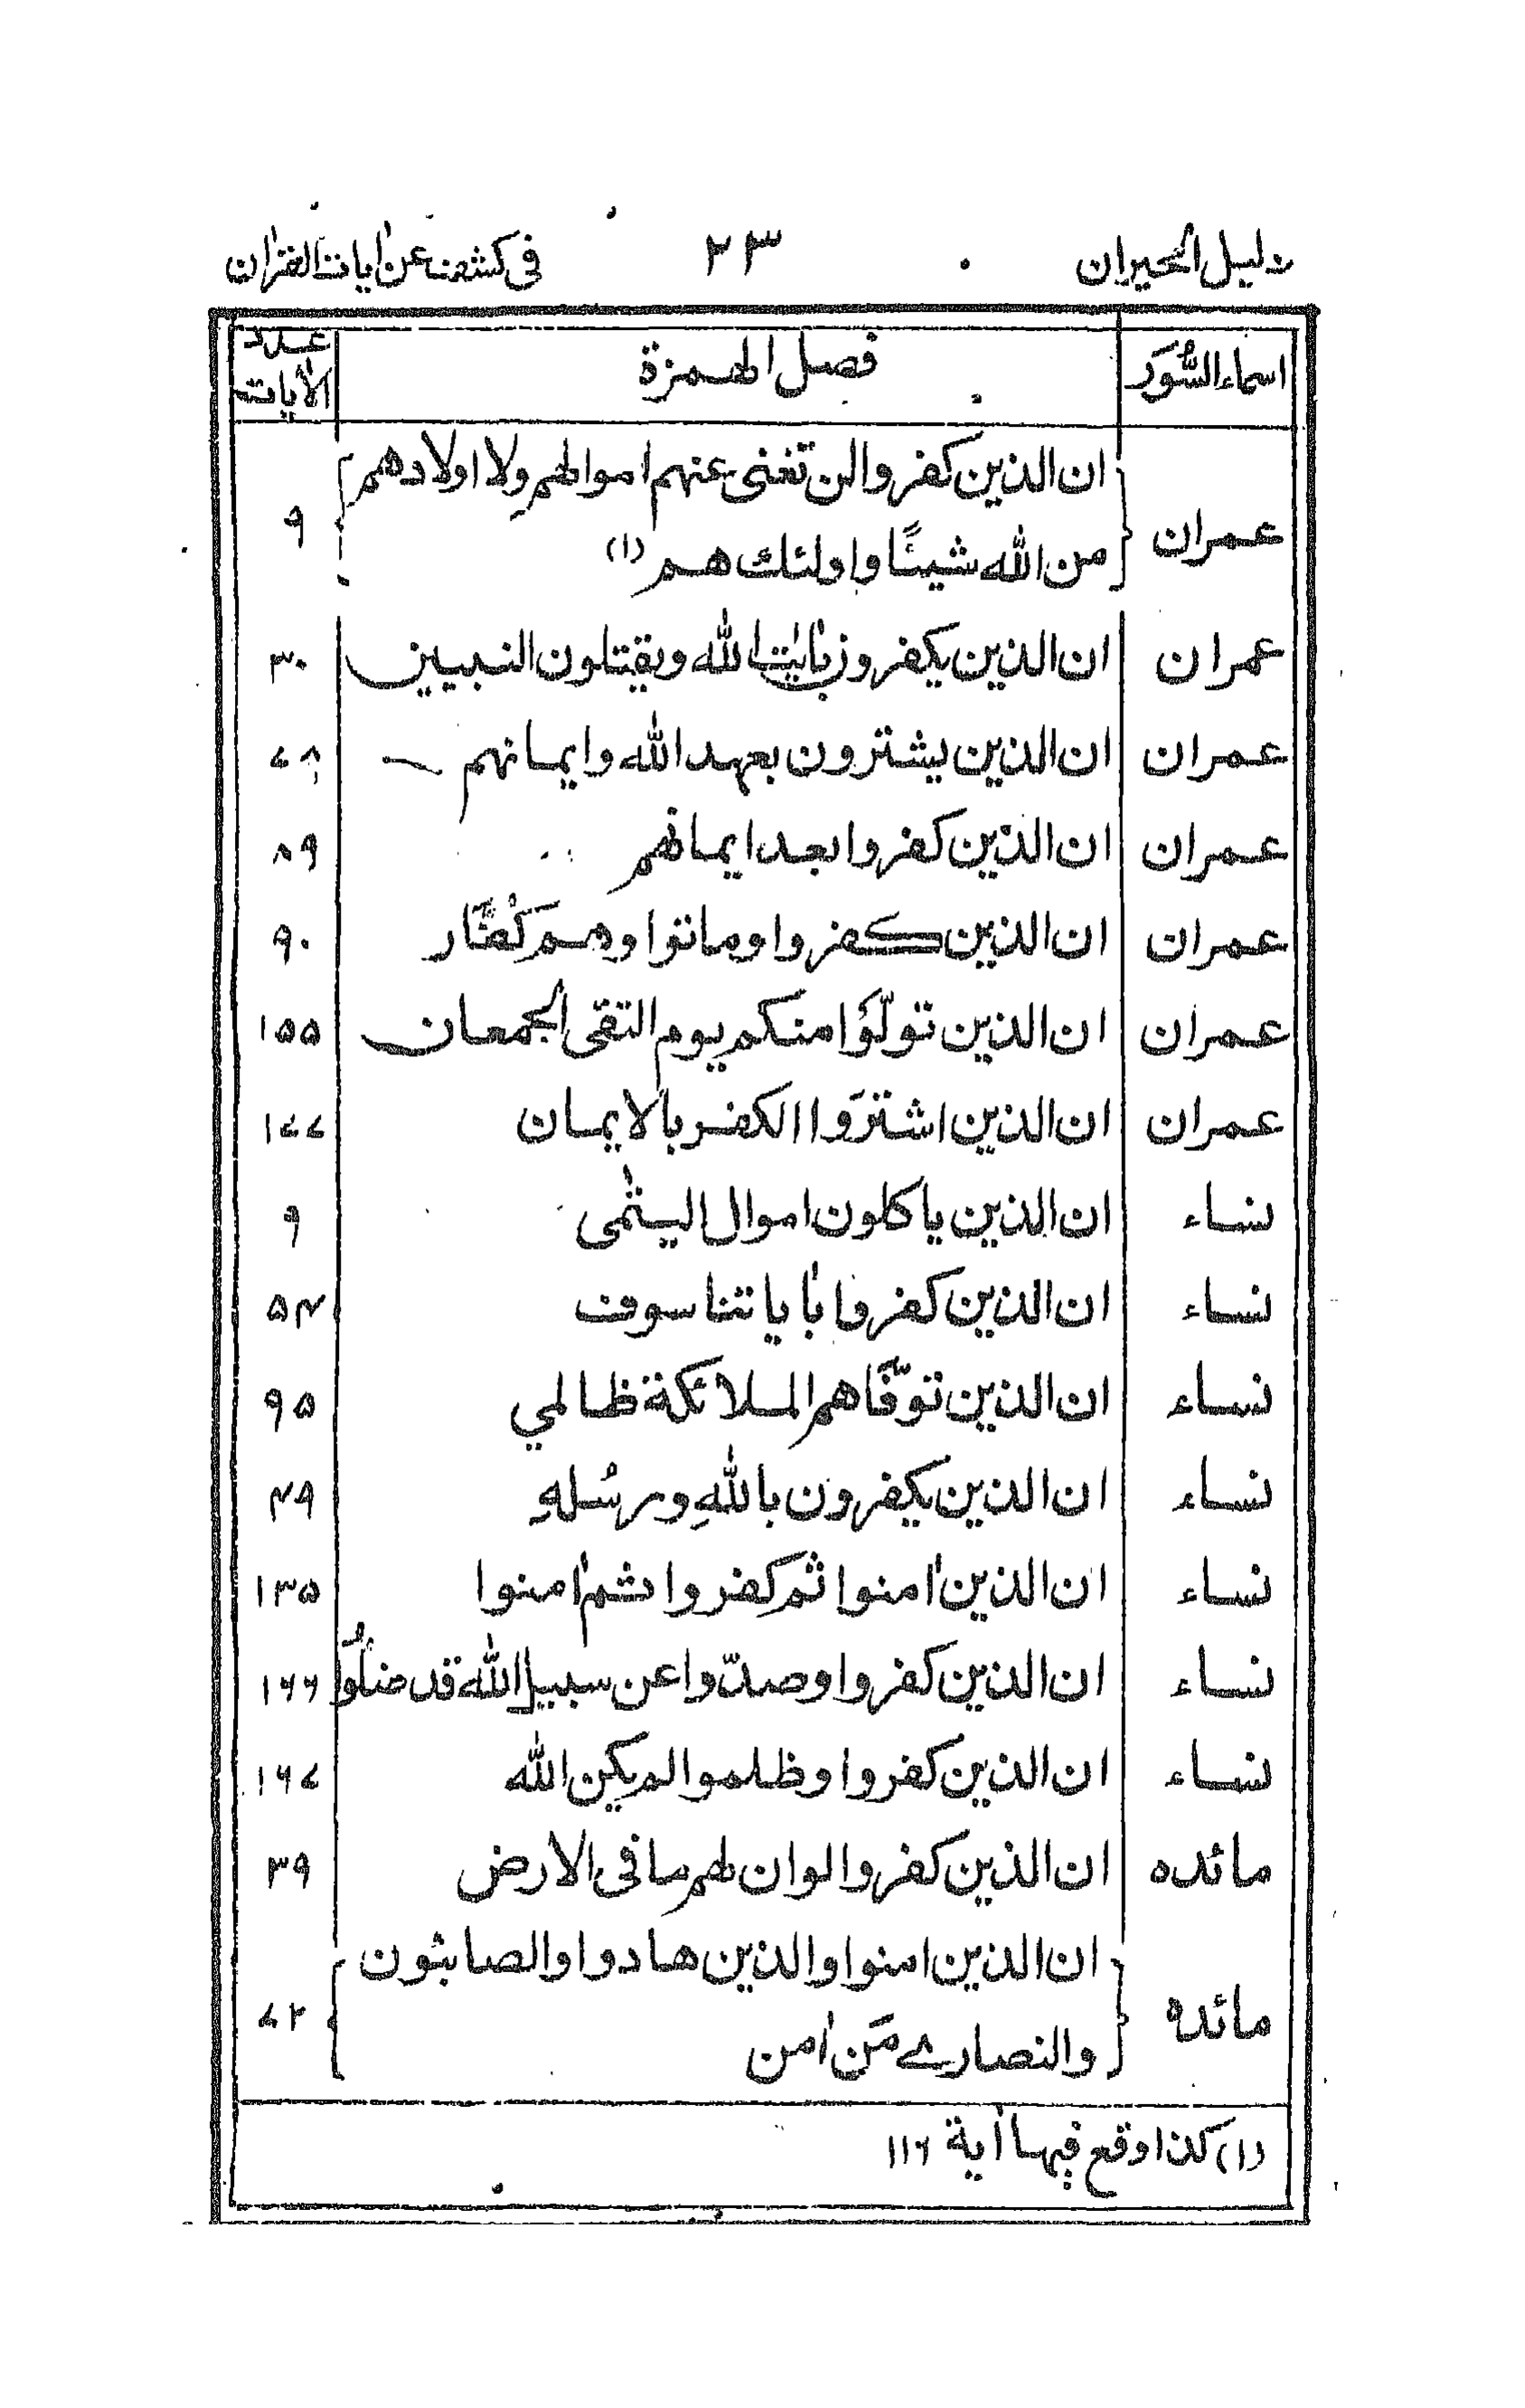 دليل الحيران ٢٣ فى كشف عن اٰيات القرٰان
اسماء السُّوَر فصل الهمزة عدد الاٰيات
عمران ان الذين كفروا لن تغنى عنهم اموالهم ولا اولادهم ٩
من الله شيئًا واولئك هم (١)
عمران ان الذين يكفرون باٰيٰت الله ويقتلون النبيين ٣٠
عمران ان الذين يشترون بعهد الله وايمانهم ٧٨
عمران ان الذين كفروا بعد ايمانهم ٨٩
عمران ان الذين كفروا وماتوا وهم كُفَّار ٩٠
عمران ان الذين تولَّوْا منكم يوم التقى الجمعان ١٥٥
عمران ان الذين اشترَوا الكفر بالايمان ١٧٧
نساء ان الذين ياكلون اموال اليتٰمى ٩
نساء ان الذين كفروا باٰياتنا سوف ٥٤
نساء ان الذين توفّاهم الملائكة ظالمي ٩٥
نساء ان الذين يكفرون باللهِ ورسُلهِ ٤٩
نساء ان الذين اٰمنوا ثم كفروا ثم اٰمنوا ١٣٥
نساء ان الذين كفروا وصدّوا عن سبيل الله قد ضلُّوا ١٦٦
نساء ان الذين كفروا وظلموا لم يكن الله ١٦٧
مائده ان الذين كفروا لو ان لهم ما فى الارض ٣٩
مائده ان الذين امنوا والذين هادوا والصابئون ٧٢
والنصارے مَن اٰمن
(١) كذا وقع فيها اٰية ١١٦